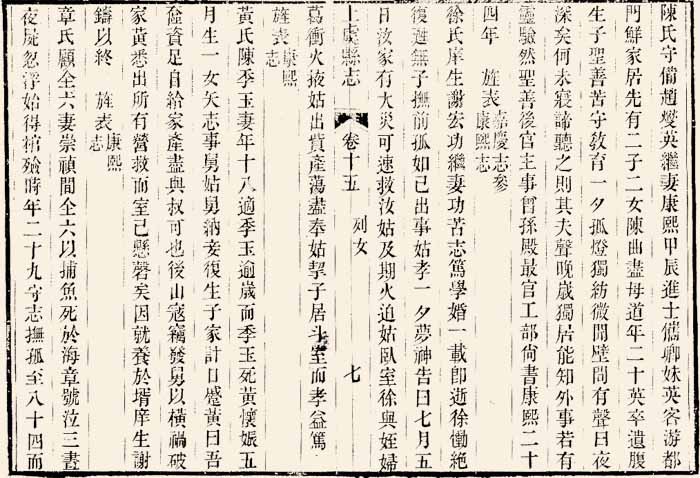 陳氏守備趙爕英繼妻康熙甲辰進士儒卿妹英客游都
門鮮家居先有二子二女陳曲盡母道年二十英卒遺腹
生子聖善苦守敎育一夕孤燈獨紡微聞壁間有聲曰夜
深矣何未寢諦聽之則其夫聲晚歲獨居能知外事若有
靈驗然聖善後官主事曾孫殿最官工部尙書康熙二十
四年 旌表嘉慶志參康熙志
徐氏庠生謝宏功繼妻功苦志篤學婚一載卽逝徐慟絶
復甦無子撫前孤如己出事姑孝一夕夢神告曰七月五
日汝家有大災可速救汝姑及期火迫姑臥室徐與姪婦
上虞縣志 卷十五 列女 七
葛衝火掖姑出貲產蕩盡奉姑挈子居斗室而孝益篤
旌表康熙志
黃氏陳季玉妻年十八適季玉逾歲而季玉死黃懷娠五
月生一女矢志事舅姑舅納妾復生子家計日蹙黃曰吾
奩資足自給家產盡與叔可也後山寇竊發舅以橫禍破
家黃悉出所有營救而室已懸磬矣因就養於壻庠生謝
鑄以終 旌表康熙志
章氏顧全六妻崇禎間全六以捕魚死於海章號泣三晝
夜屍忽浮始得棺殮時年二十九守志撫孤至八十四而